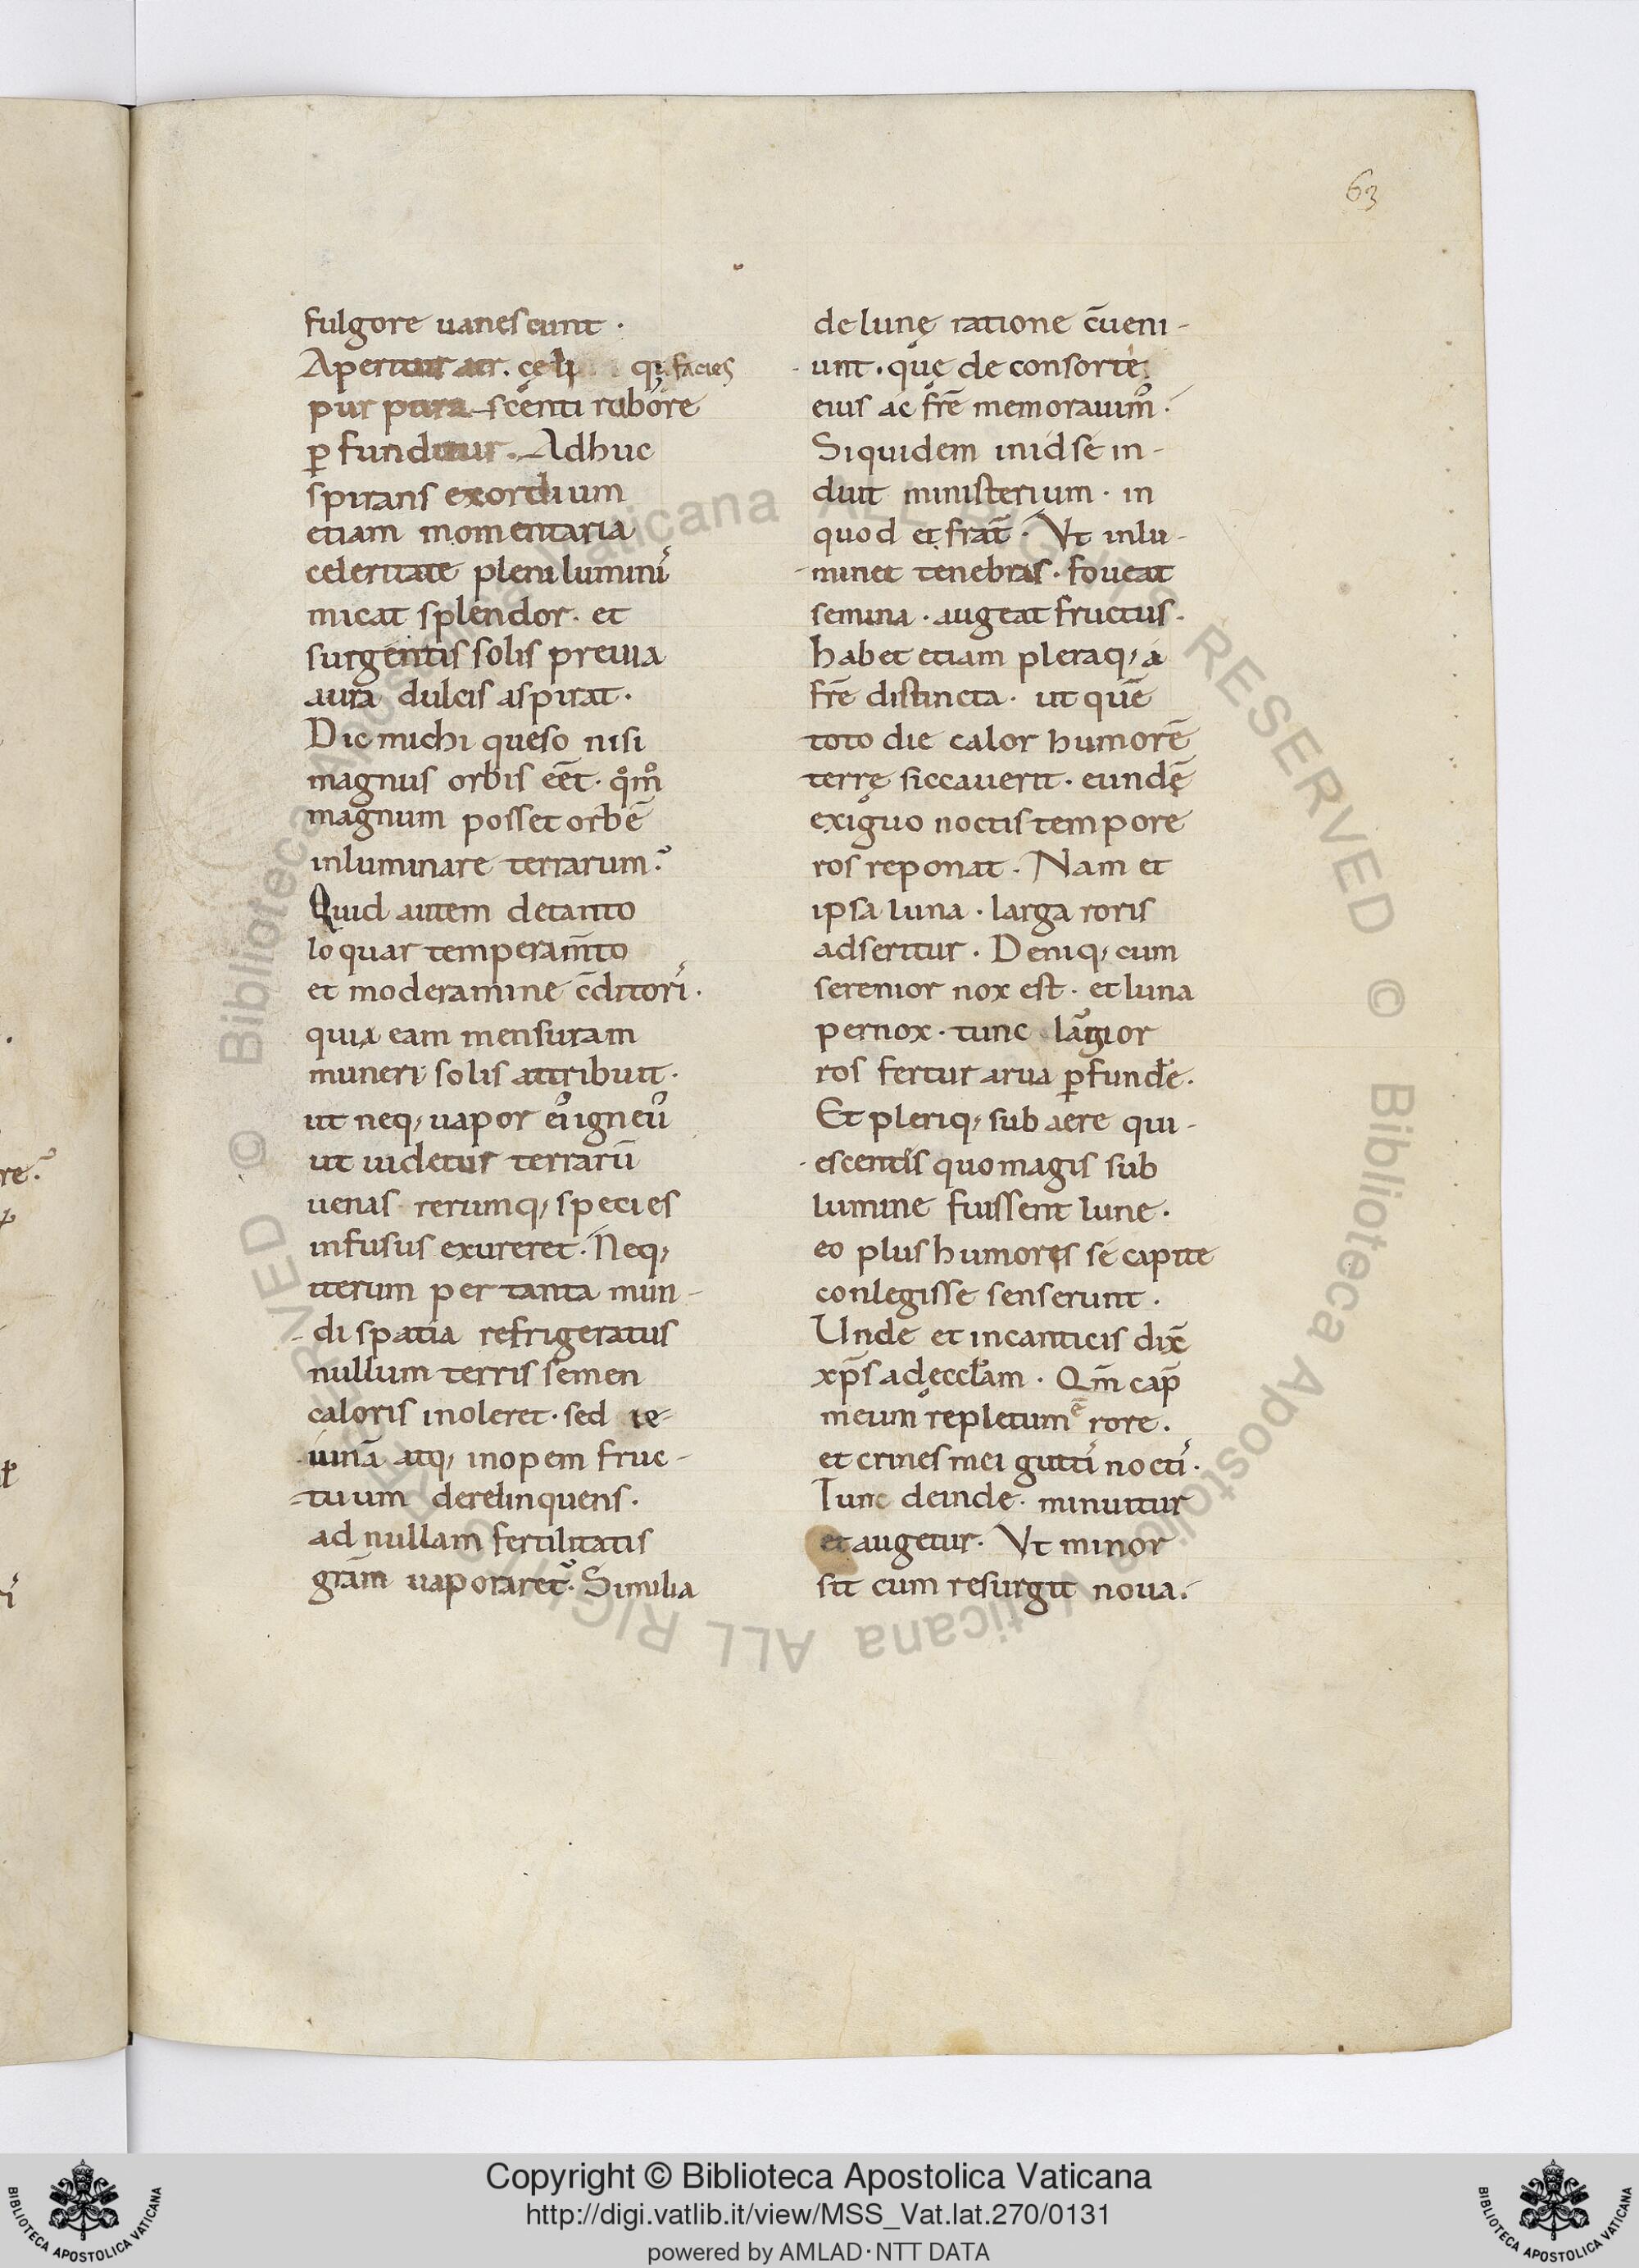 63
fulgore uanescunt ·
Aperitur aer . cęli q; facies
pur pura scenti rubore
ꝑ funditur . Adhuc
spirans exordium
etiam momentaria
celeritate plenilumini᷒
micat splendor · et
surgentis solis preuia
aura dulcis aspirat ·
Dic michi queso nisi
magnus orbis eēt · qͦmͦ
magnum posset orbē
inluminare terrarum ?
Quid autem detanto
loquar temperam̄to
et moderamine c̄ditori᷒ ·
quia eam mensuram
muneri solis attribuit ·
ut neq; uapor ei᷒ igneu᷒
ut uidetur terrarū
uenas rerumq; species
infusus exureret · Neq;
iterum per tanta mun-
- di spatia refrigeratus
nullum terris semen
caloris inoleret · sed ie-
- iunā atq; inopem fruc-
- tuum derelinquens ·
ad nullam fertilitatis
grām uaporaret ? Similia
de lunę ratione c̄ueni-
- unt · quę de consorte
eius ac frē memorauim᷒ ·
Siquidem inidse in-
duit ministerium · in
quod et frat̄ · Vt inlu-
- minet tenebras · foueat
semina · augeat fructus ·
habet etiam pleraq; a
frē distincta · ut quē
toto die calor humorē
terrę siccauerit · eundē
exiguo noctis tempore
ros reponat · Nam et
ipsa luna · larga roris
adseritur · Deniq; cum
serenior nox est · et luna
pernox · tunc largior
ros fertur arua ꝑfund̄e ·
Et pleriq; sub aere qui-
- escentis quo magis sub
lumine fuissent lune ·
eo plus humores se capite
conlegisse senserunt ·
Unde et incanticis dix̄
xp̄s adecclam · Qm̄ cap̄
meum repletum ē rore ·
et crines mei gutti᷒ nocti᷒ ·
Tunc deinde · minuitur
et augetur · Vt minor
sit cum resurgit noua ·
re ?
© Biblioteca Apostolica Vaticana ALL RIGHTS RESERVED © Biblioteca Apostolica Vaticana ALL RIGHTS RESERVED
BIBLIOTECA APOSTOLICA VATICANA
Copyright © Biblioteca Apostolica Vaticana
http://digi.vatlib.it/view/MSS_Vat.lat.270/0131
powered by AMLAD·NTT DATA
BIBLIOTECA APOSTOLICA VATICANA